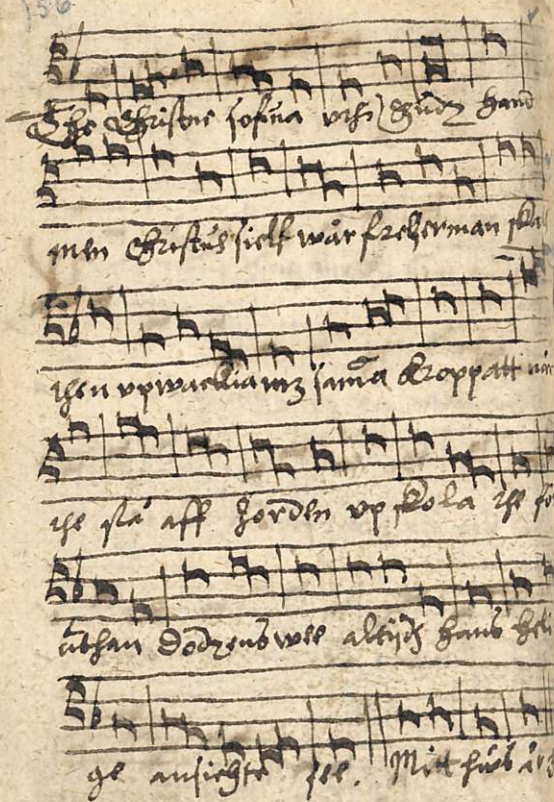 156
The Christne sofua uthi Gudz hand
men Christus sielf wår frelserman ska
then upweckia mz sama kroppatt när
the stå aff jorden up skola the se
uthan Dödzens wee altijdh hans heli
ge ansichte see. Mitt hws är